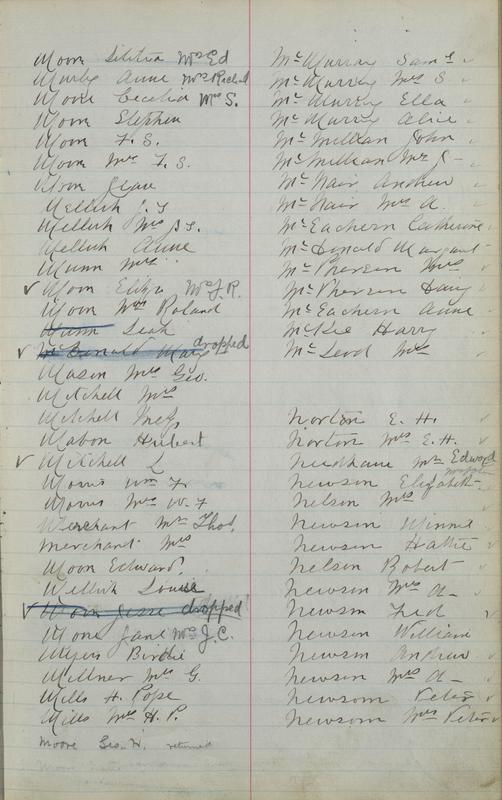 Moore Letitia Mrs Ed
Murby Anne Mrs Richd
Moore Cecelia Mrs S.
Moore Stephen
Moore F. S.
Moore Mrs F. S.
Moore Jean
Mellish J. S
Mellish Mrs J S.
Mellish Anne
Munn Mrs
✓ Moore Eliza Mrs J. R.
Moore Mrs Roland
Munn Leah
✓ McDonald Mary dropped
Mason Mrs Geo.
Mitchell Mrs
Mitchell
Mabon Hubert
✓ Mitchell L
Morris Wm F.
Morris Mrs W. F
Merchant Mr Thos.
Merchant Mrs
Moore Edward
Mellish Louise
✓ Moore Jesse dropped
Moore Jane Mrs J. C.
Myers Birdie
Millner Mrs G.
Mills H. Pope
Mills Mrs H. P.
Moore Geo. W. returned
McMurray Saml
McMurray Mrs S
McMurray Ella
McMurray Alice
McMillan John
McMillan Mrs J
McNair Andrew
McNair Mrs A.
McEachern Catherine
McDonald Margaret
McPherson Mrs
McPherson Harry
McEachern Anne
McKie Harry
McLeod Mrs
Norton E. H.
Norton Mrs E. H.
Needhame Mr Edward
Newson Elizabeth
Nelson Mrs
Newson Minnie
Newson Hattie
Nelson Robert
Newson Mrs A
Newsom Fred
Newson William
Newson Andrew
Newson Mrs A
Newsom Peter
Newsom Mrs Peter